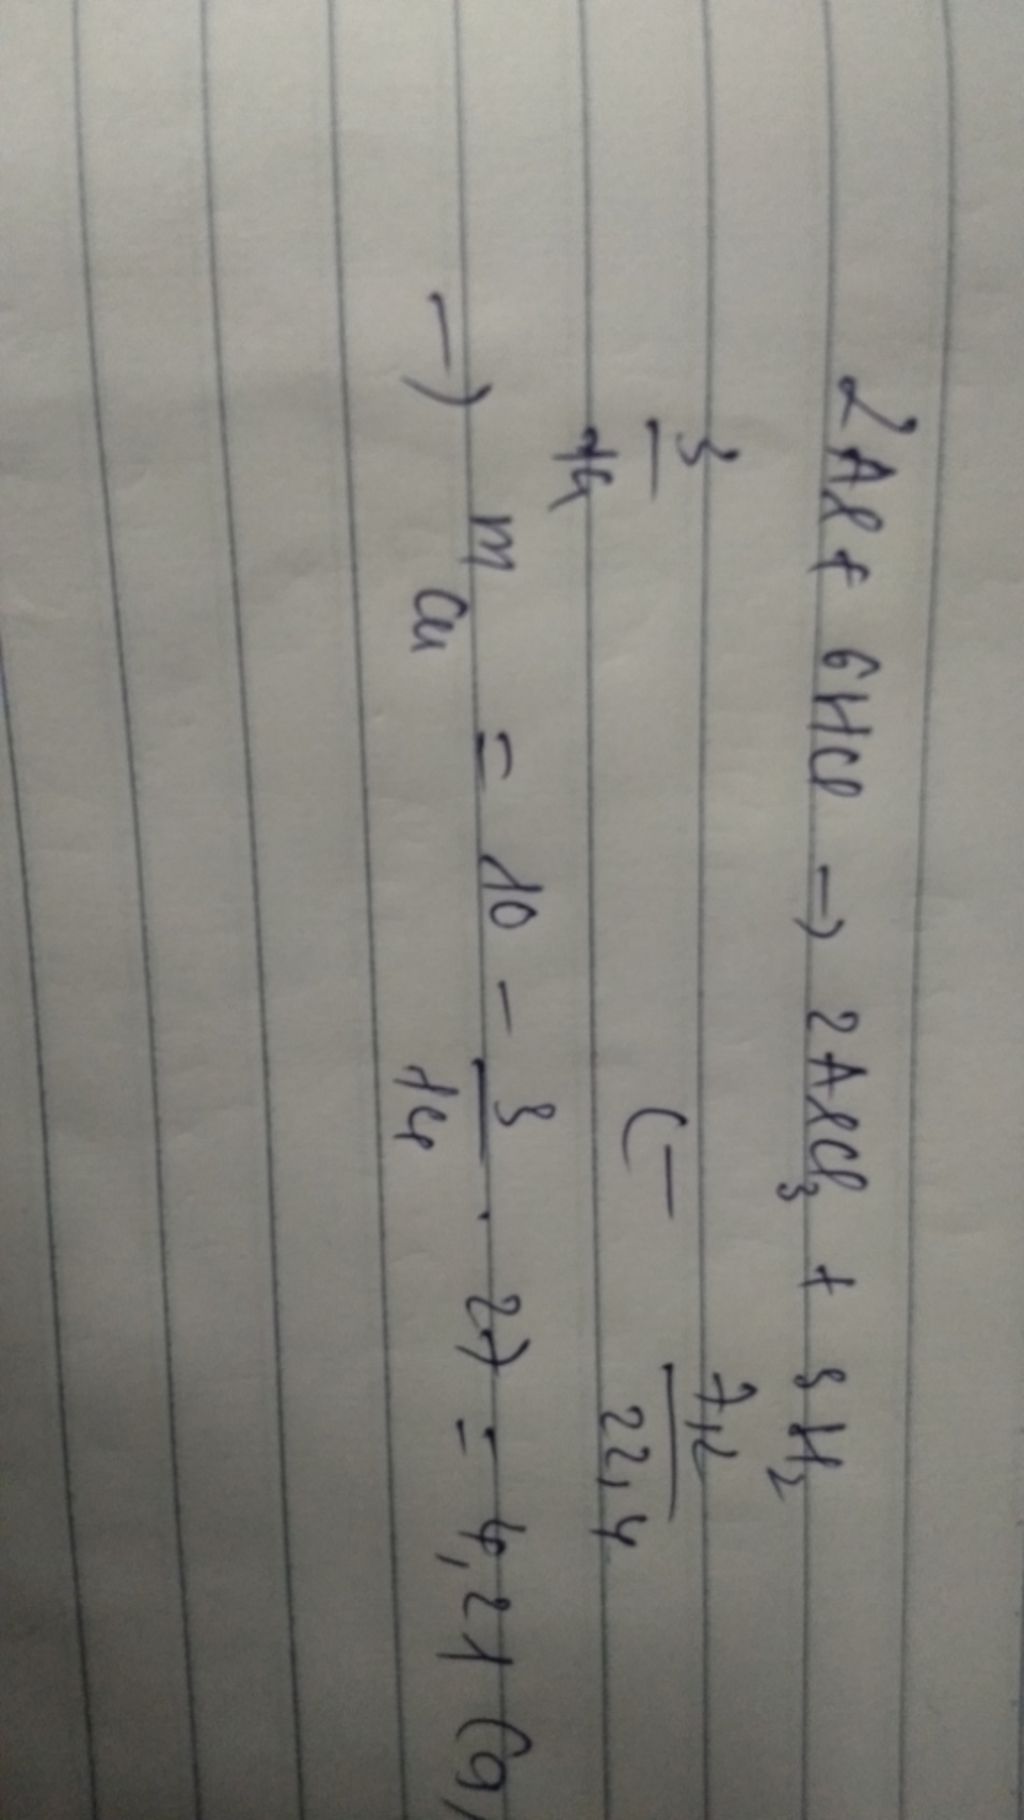 2Al + 6HCl → 2AlCl₃ + 3H₂
3/14 ← 7,2/22,4
→ m Cu = 10 - 3/14 . 27 = 4,21 (g)